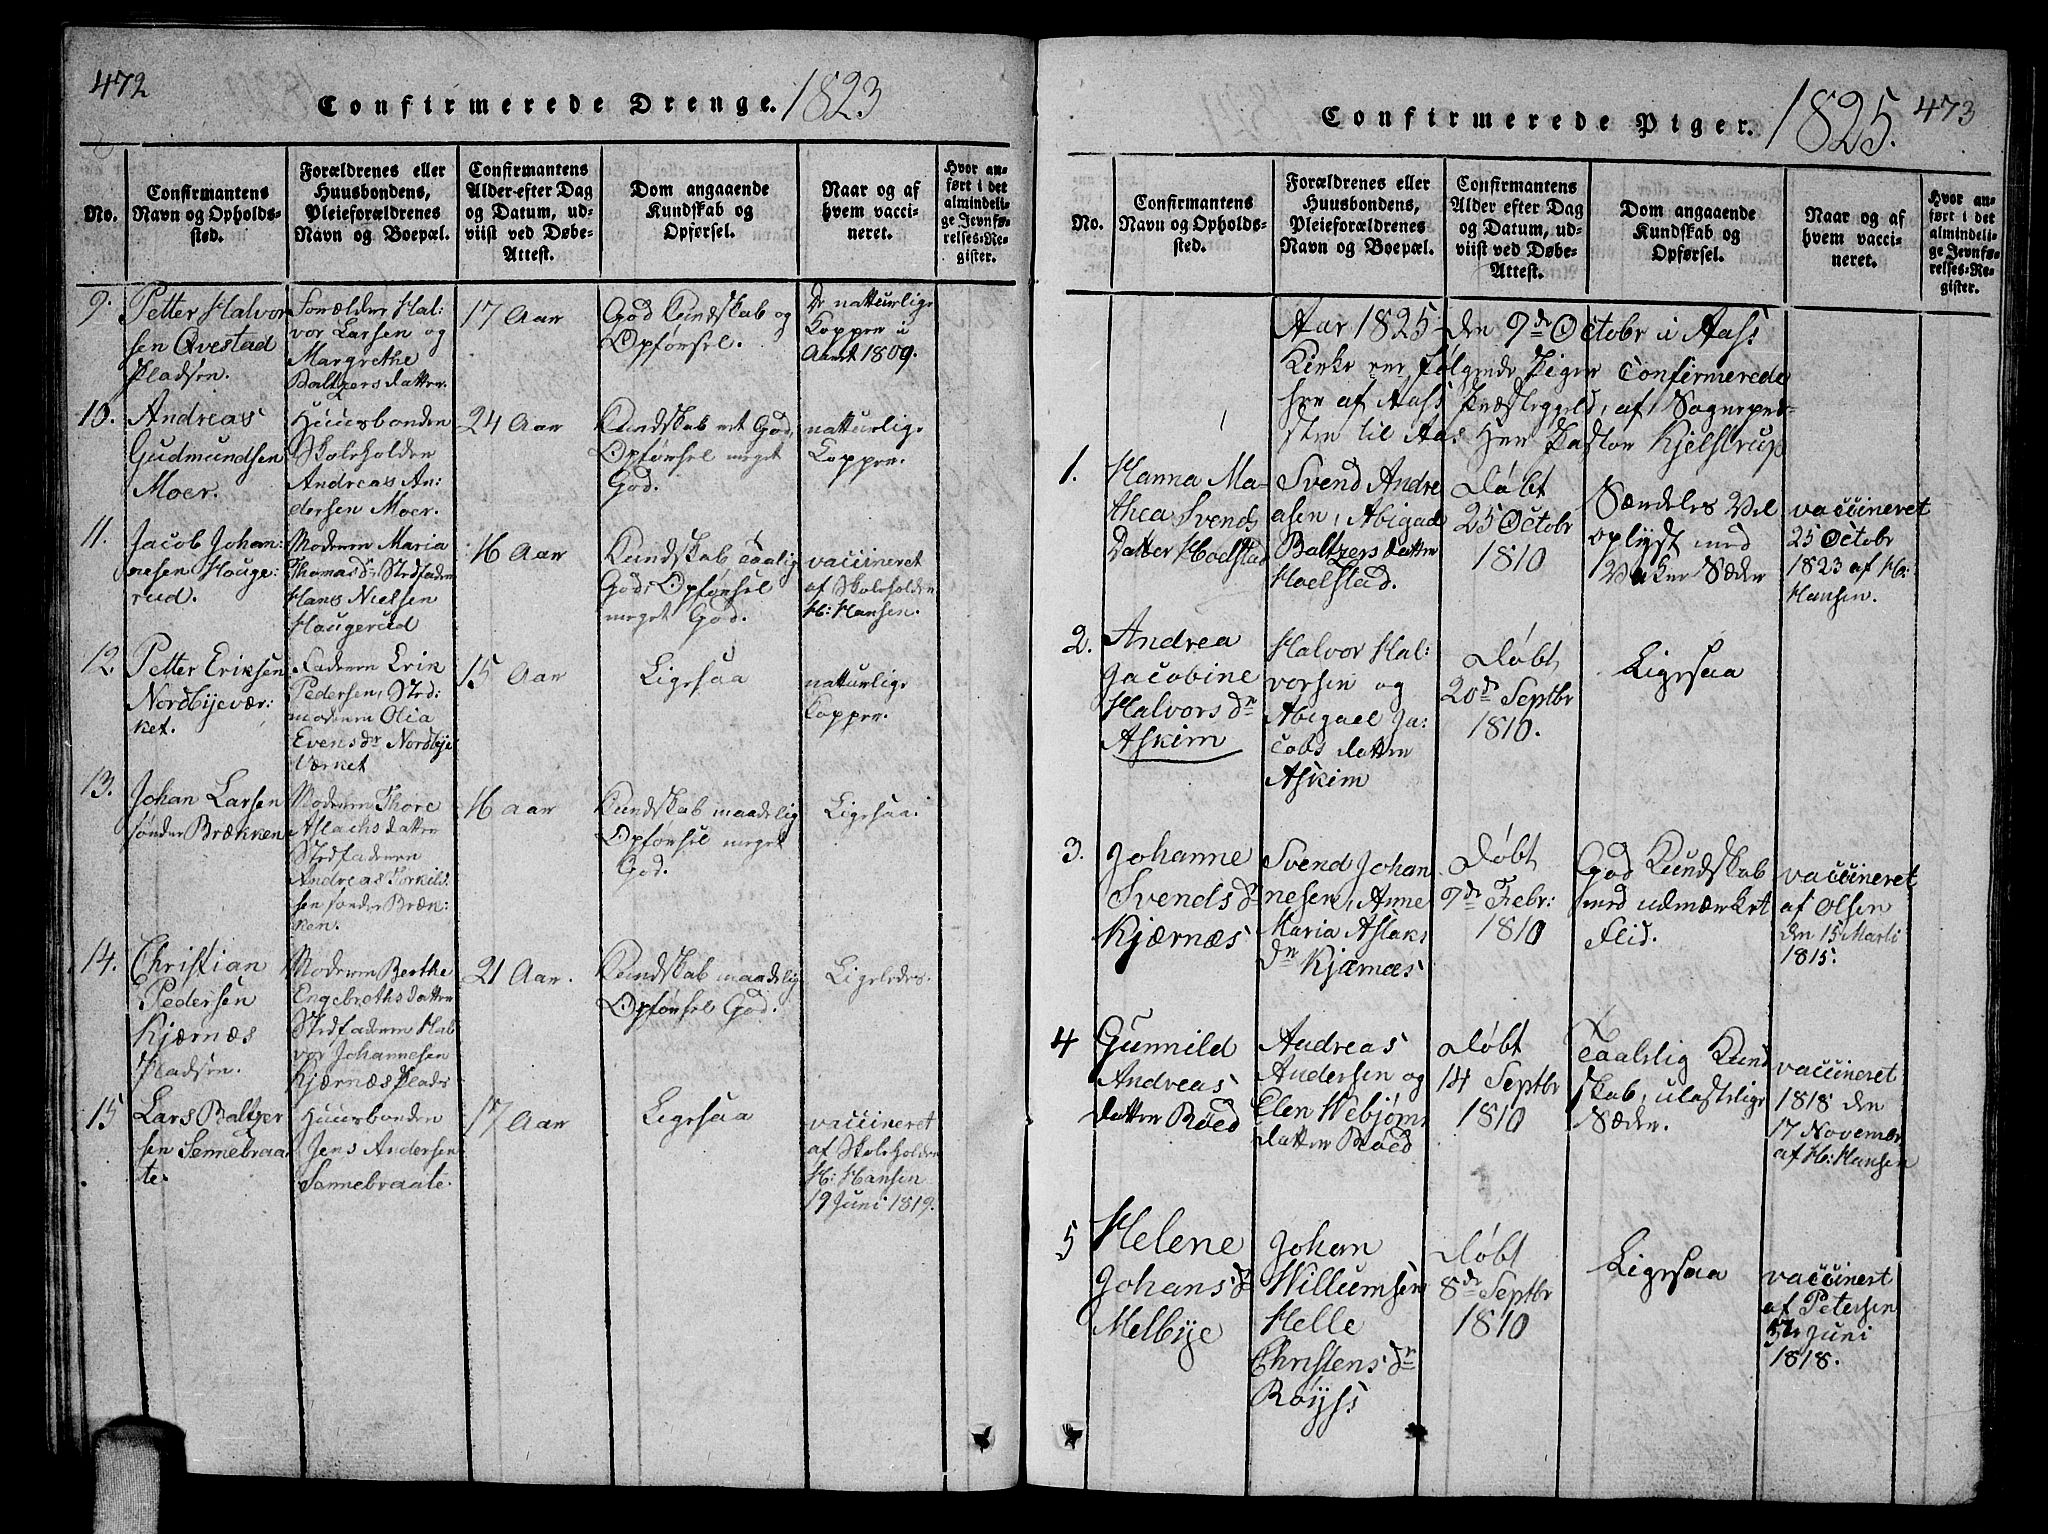 472
Confirmerede Drenge. 1823
No.
Confirmantens
Navn og Opholds-
sted.
Forældrenes eller
Huusbondens,
Pleieforældrenes
Navn og Boepæl.
Confirmantens
Alder efter Dag
og Datum, ud-
viist ved Døbe-
Attest.
Dom angaaende
Kundskab og
Opførsel.
Naar og af
hvem vacci-
neret.
Hvor an-
ført i det
almindeli-
ge Jevnfø-
relses-Re-
gister.
9.
Petter Halvor
sen Qvestad
Pladsen.
Forælder Hal-
vor Larsen og
Margrethe
Baltzersdatter.
17 Aar
God Kundskab og
Opførsel.
De naturlige
Kopper i
Aaret 1809.
10.
Andreas
Gudmundsen
Moer.
Huusbonden
Skoleholder
Andreas An-
dersen Moer.
24 Aar
Kundskab ret God,
Opførsel meget
God.
naturlige
Kopper.
11.
Jacob Johan:
nesen Houge:
rud.
Moderen Maria
Thomas Dr Stedfader
Hans Nielsen
Haugerud
16 Aar
Kundskab taalig
God, Opførsel
meget God.
vaccineret
af Skoleholder
H: Hansen.
12.
Petter Eriksen
Nordbyevær:
ket.
Faderen Erik
Pedersen, Sted:
moderen Olia
Evens dr Nordbye
Værket
15 Aar
Ligesaa
naturlige
Kopper.
13.
Johan Larsen
søndre Brækken
Moderen Thore
Aslachs datter
Stedfaderen
Andreas Torkild:
sen søndre Bræk-
ken.
16 Aar
Kundskab maadelig
Opførsel meget
God.
Ligesaa.
14.
Christian
Pedersen
Kjærnæs
Pladsen.
Moderen Berthe
Engebrethsdatter
Stedfaderen Hal
vor Johannesen
Kjærnæs Plads
21 Aar.
Kundskab maadelig
Opførsel God.
Ligeledes.
15
Lars Baltzer
sen Sennebraa
te.
Huusbonden
Jens Andersen
Sennebraate.
17 Aar
Ligesaa
vaccineret
af Skoleholder
H: Hansen
19 Juni 1819.
Confirmerede Piger. 1825. 473
No.
Confirmantens
Navn og Opholds-
sted.
Forældrenes eller
Huusbondens,
Pleieforældrenes
Navn og Boepæl.
Confirmantens
Alder efter Dag
og Datum, ud-
viist ved Døbe-
Attest.
Dom angaaende
Kundskab og
Opførsel.
Naar og af
hvem vacci-
neret.
Hvor an-
ført i det
almindeli-
ge Jevnfø-
relses-Re-
gister.
Aar 1825 den 9de Octobr i Aass
Kirke ere følgende Piger Confirmerede
her af Aass Præstegjeld, af Sognepræ-
sten til Aas Herr Pastor Kjelstrup
1.
Hanna Ma-
thea Svends
Datter Hoelstad
Svend Andre
asen, Abigael
Baltzersdatter
Hoelstad.
Døbt
25 Octobr
1810
Særdeles Vel
oplyst med
Vakre Sæder
vaccineret
25 Octobr
1823 af H:
Hansen.
2.
Andrea
Jacobine
Halvors dr
Askim
Halvor Hal:
vorsen og
Abigael Ja:
cobs datter
Askim
Døbt
20de Septbr
1810.
Ligesaa
3.
Johanne
Svends dr
Kjærnæs
Svend Johan
nesen, Anne
Maria Aslaks
dr Kjærnæs
Døbt
9de Febr:
1810
God Kundskab
med udmærket
Flid.
vaccineret
af Olsen
den 15 Marti
1815.
4
Gunnild
Andreas
datter Røed
Andreas
Andersen og
Elen Webjørns
datter Røed
Døbt
14 Septbr
1810
Taalelig Kund
skab, ulastelige
Sæder.
vaccineret
1818 den
17 Novembr
af H: Hansen
5
Helene
Johans dr
Melbye
Johan
Willumsen
Helle
Christens dr
Røyss
Døbt
8de Septbr
1810
Ligesaa
vaccinert
af Petersen
Juni
1818.